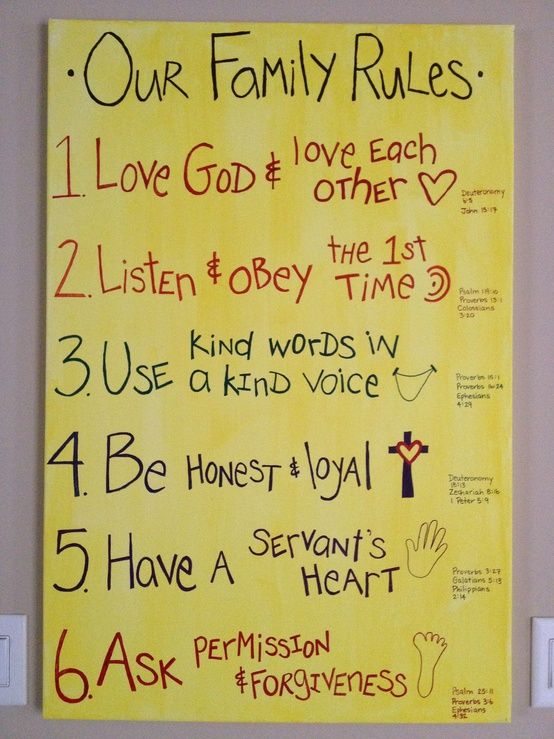 · OUR FAMILY RULES ·
1. Love GOD & love EacH
OTHER
Deuteronomy
6:5
John 13:17
2. ListEn & OBEY tHE 1st
TiME
Proverbs 13:1
Colossians
3:20
3. USE KinD WORDS iN
a KinD voice
Proverbs 15:1
Proverbs 16:24
Ephesians
4:29
4. Be HONEST & loyal
Deuteronomy
Zechariah 8:16
5. Have A SERVANT'S
HEART
Proverbs 3:27
Galatians 5:13
Philippians
2:14
6. ASK PERMISSION
& FORGIVENESS
Proverbs 3:6
Ephesians
4:32